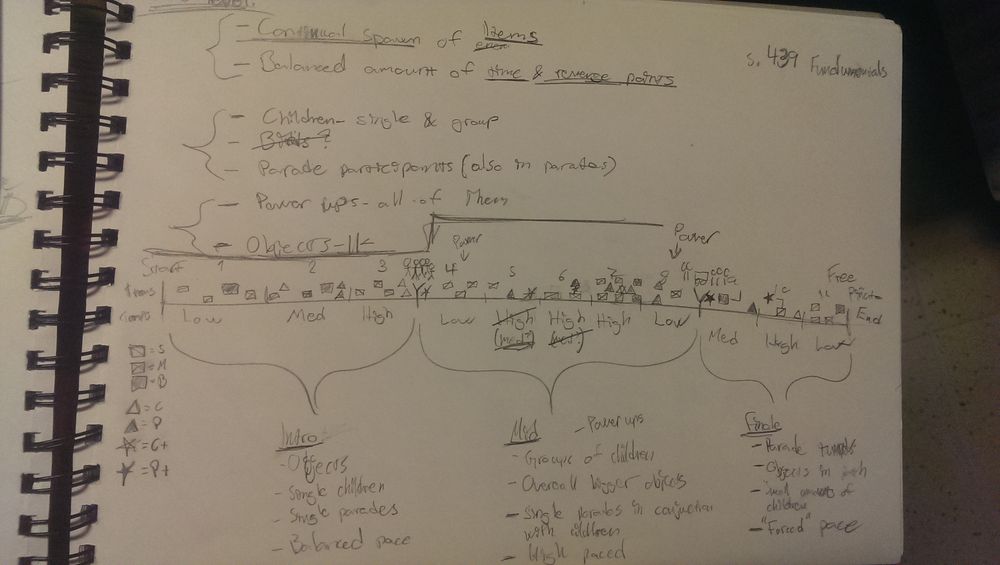 - Continual spawn of Items
- Balanced amount of time & reverse points
s. 439 Fundamentals
- Children - single & group
- Birds?
- Parade participants (also in parades)
- Power ups - all of them
- Objects -
Start 1 2 3 4 Power 5 6 7 8 Power Free
Items
End
Low Med High Low High High High Low Med High Low
(med) (med)
= S
= M
= B
= C
= P
= C+
= P+
Intro
- Objects
- Single children
- Single parades
- Balanced pace
Mid
- Power ups
- Groups of children
- Overall bigger objects
- Single parades in conjunction
with children
- High paced
Finale
- Parade
- Objects in
- Small amount of
children
- "Forced" pace